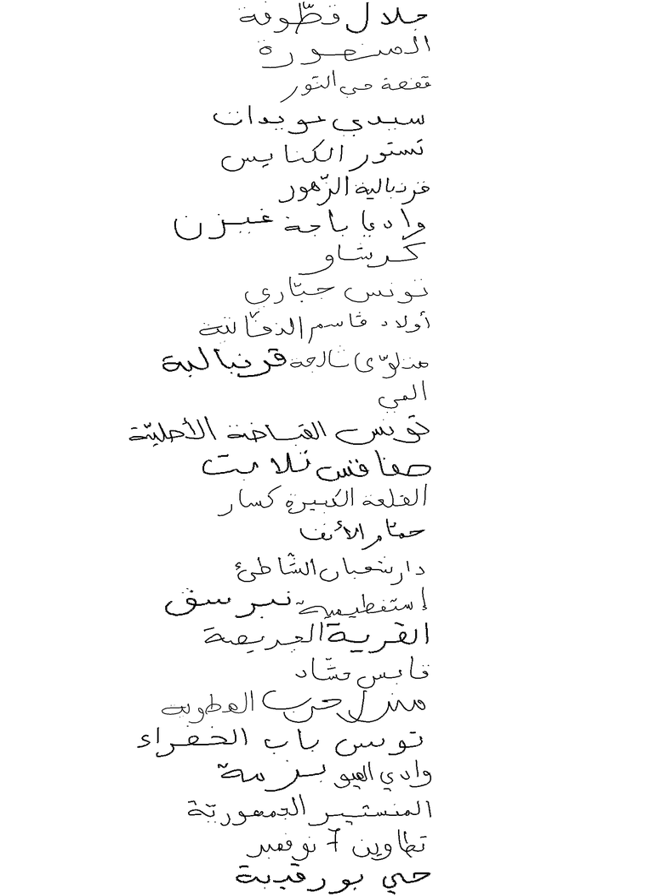 جلال قطّوفة
المنصورة
قفصة حي النور
سيدي عويدات
تستور الكنايس
قرنبالية الزّهور
وادي باجة غيزن
كرشاو
تونس حبّاري
أولاد قاسم الدقّانية
منزلوّي شالجة قرنبالية
المي
تونس القباضة الأصليّة
صفاقس ثلايت
القلعة الكبيرة كسار
حمّام الأنف
دار شعبان الشّاطئ
إستفطيمية نبرسق
القرية العريضة
قابس حشّاد
منزل حرب العطوية
تونس باب الخضراء
وادي بزمة
المنستير الجمهوريّة
تطاوين 7 نوفمبر
حي بورقيبة